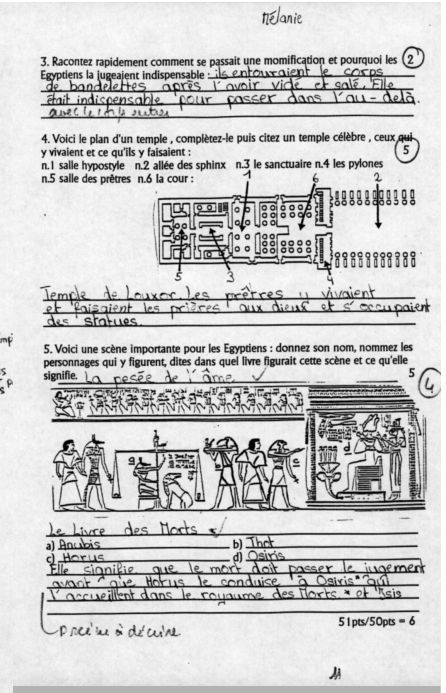 Mélanie
3. Racontez rapidement comment se passait une momification et pourquoi les 2
Egyptiens la jugeaient indispensable : ils entouraient le corps
de bandelettes après l'avoir vidé et salé. Elle
était indispensable pour passer dans l'au-delà.
4. Voici le plan d'un temple , complètez-le puis citez un temple célèbre , ceux qui
y vivaient et ce qu'ils y faisaient : 5
n.1 salle hypostyle n.2 allée des sphinx n.3 le sanctuaire n.4 les pylones
n.5 salle des prêtres n.6 la cour :
1 6 2
5 3 4
Temple de Louxor. Les prêtres y vivaient
et faisaient les prières aux dieux et s'occupaient
des statues.
5. Voici une scène importante pour les Egyptiens : donnez son nom, nommez les
personnages qui y figurent, dites dans quel livre figurait cette scène et ce qu'elle
signifie. La pesée de l'âme. 5
4
Le Livre des Morts
a) Anubis b) Thot
c) Horus d) Osiris
Elle signifie que le mort doit passer le jugement
avant que Horus le conduise à Osiris* qui
l'accueillent dans le royaume des Morts. * et Isis
51pts/50pts = 6